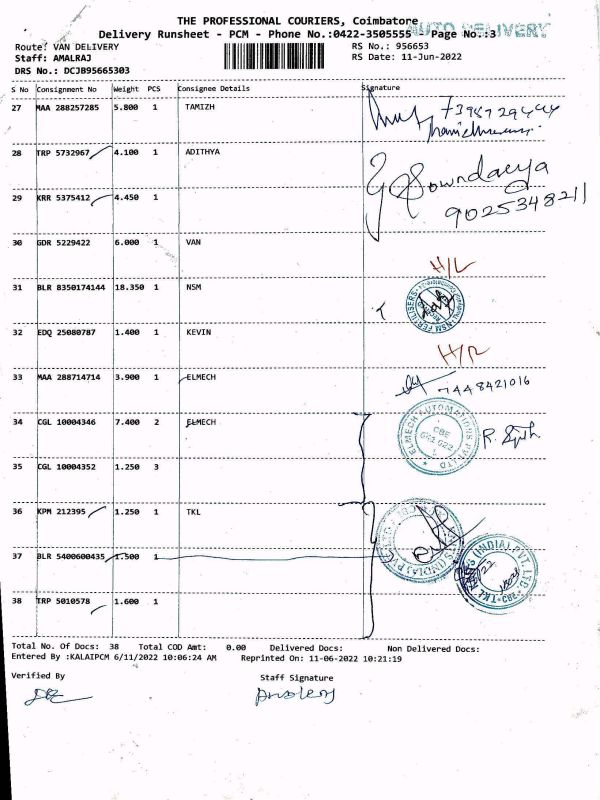 THE PROFESSIONAL COURIERS, Coimbatore
AUTO DELIVERY
Delivery Runsheet - PCM - Phone No.:0422-3505555 - Page No.:3
Route: VAN DELIVERY RS No.: 956653
Staff: AMALRAJ RS Date: 11-Jun-2022
DRS No.: DCJB95665303
S No Consignment No Weight PCS Consignee Details Signature
27 MAA 288257285 5.800 1 TAMIZH
28 TRP 5732967 4.100 1 ADITHYA
Sowndarya
29 KRR 5375412 4.450 1 9025348211
30 GDR 5229422 6.000 1 VAN
H/L
31 BLR 8350174144 18.350 1 NSM
32 EDQ 25080787 1.400 1 KEVIN
H/R
33 MAA 288714714 3.900 1 ELMECH 7448421016
34 CGL 10004346 7.400 2 ELMECH
ELMECH AUTOMATIONS PVT LTD
CBE
35 CGL 10004352 1.250 3
36 KPM 212395 1.250 1 TKL
37 BLR 5400600435 1.500 1
(INDIA) PVT. LTD.
38 TRP 5010578 1.600 1
Total No. Of Docs: 38 Total COD Amt: 0.00 Delivered Docs: Non Delivered Docs:
Entered By :KALAIPCM 6/11/2022 10:06:24 AM Reprinted On: 11-06-2022 10:21:19
Verified By Staff Signature